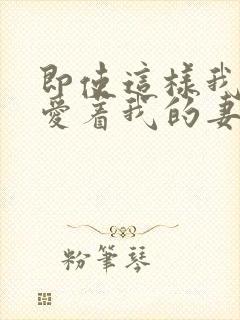 即使這樣我
愛着我的妻
粉筆琴